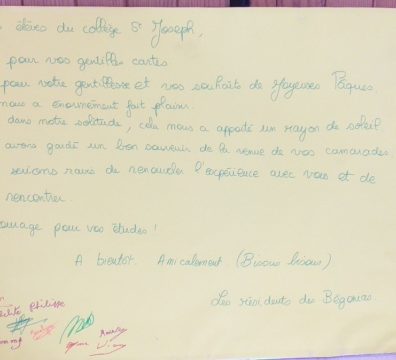 élèves du collège St Joseph,
pour vos gentilles cartes
pour votre gentillesse et vos souhaits de Joyeuses Pâques.
nous a énormément fait plaisir.
dans notre solitude, cela nous a apporté un rayon de soleil.
avons gardé un bon souvenir de la venue de vos camarades
serions ravis de renouveler l'expérience avec vous et de
rencontrer.
ourage pour vos études !
A bientôt. Amicalement (Bisous bisous)
Les résidents des Bégonias.
Philippe